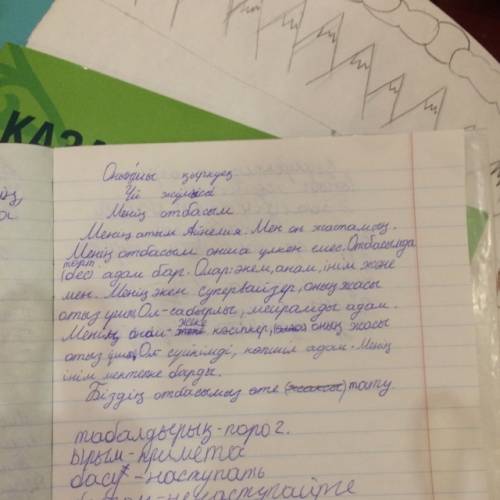 ҚАЗА
Оныншы қыркүйек
Үй жұмысы
Менің отбасым
Менің атым Айнелия. Мен он жастамын.
Менің отбасым онша үлкен емес. Отбасымда
төрт
(бес) адам бар. Олар: әкем, анам, інім және
мен. Менің әкем супервайзер, оның жасы
отыз үш. Ол - сабырлы, мейрамды адам.
жеке
Менің анам - кәсіпкер, оның жасы
отыз үш. Ол сүйкімді, көпшіл адам. Менің
інім мектепке барды.
Біздің отбасымыз өте (жақсы) тату.
табалдырық - порог.
ырым - примета
басу - наступать
- не наступайте